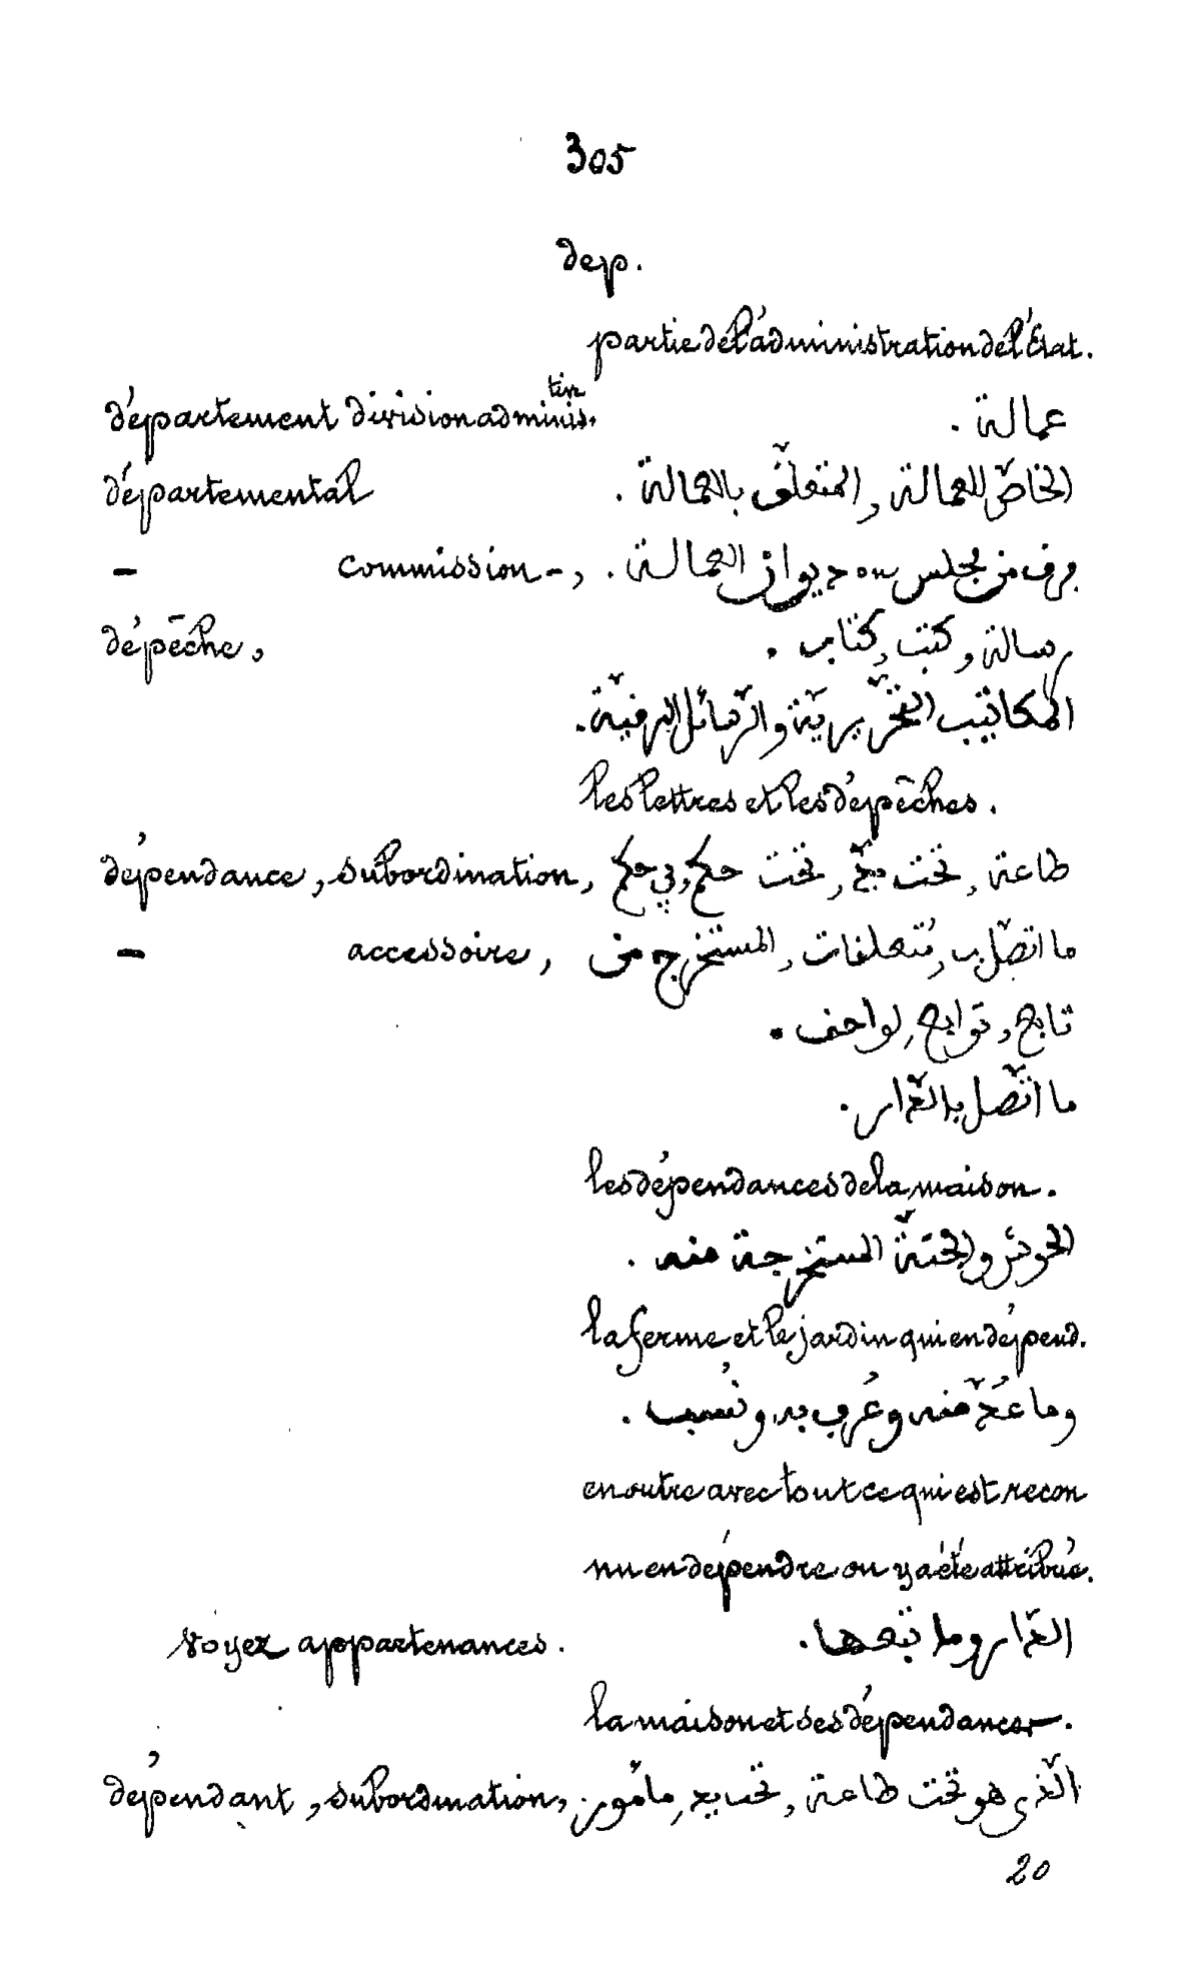 305
dep.
partie de l'administration de l'État.
département division adminis.tive عمالة .
départemental الخاصّ للعمالة , المتعلّق بالعمالة .
— commission -, من مجلس ou ديوان العمالة .
dépêche, رسالة , كتب , كتاب .
المكاتيب التحريريّة والرّسائل البرقيّة .
les lettres et les dépêches .
dépendance, subordination, طاعة , تحت يدّ , تحت حكم , في حكم
— accessoire, ما اتّصل ب , متعلقات , المستخرج من
تابع , توابع , لواحق .
ما اتّصل بالدّار .
les dépendances de la maison .
الحوش والجنّة المستخرجة منه .
la ferme et le jardin qui en dépend.
وما عُدّ منه وعُرف به ونُسب .
en outre avec tout ce qui est recon
nu en dépendre ou y a été attribué.
voyez appartenances . الدّار وما تبعها .
la maison et ses dépendances .
dépendant, subordination, الّذي هو تحت طاعة , تحت يد , مامُور .
20